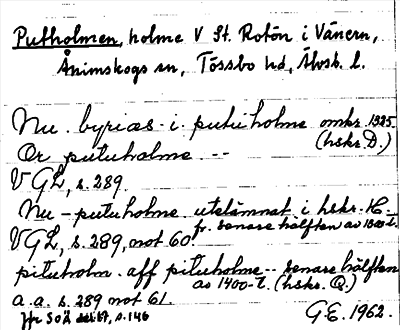 Putholmen, holme V St. Rotön i Vänern,
Ånimskogs sn, Tössbo hd, Älvsb. l.
Nu . byriæs . i . putuholmæ omkr. 1325.
Or putuholme -- (hskr. D.)
VGL, s. 289.
Nu - putuholme utelämnat i hskr. H -
fr. senare hälften av 1300-t.
VGL, s. 289, not 60.
pituholm . aff pituholme -- senare hälften
av 1400-t. (hskr. Q.)
a.a. s. 289 not 61.
Jfr SOÄ s. 146
G.E. 1962.